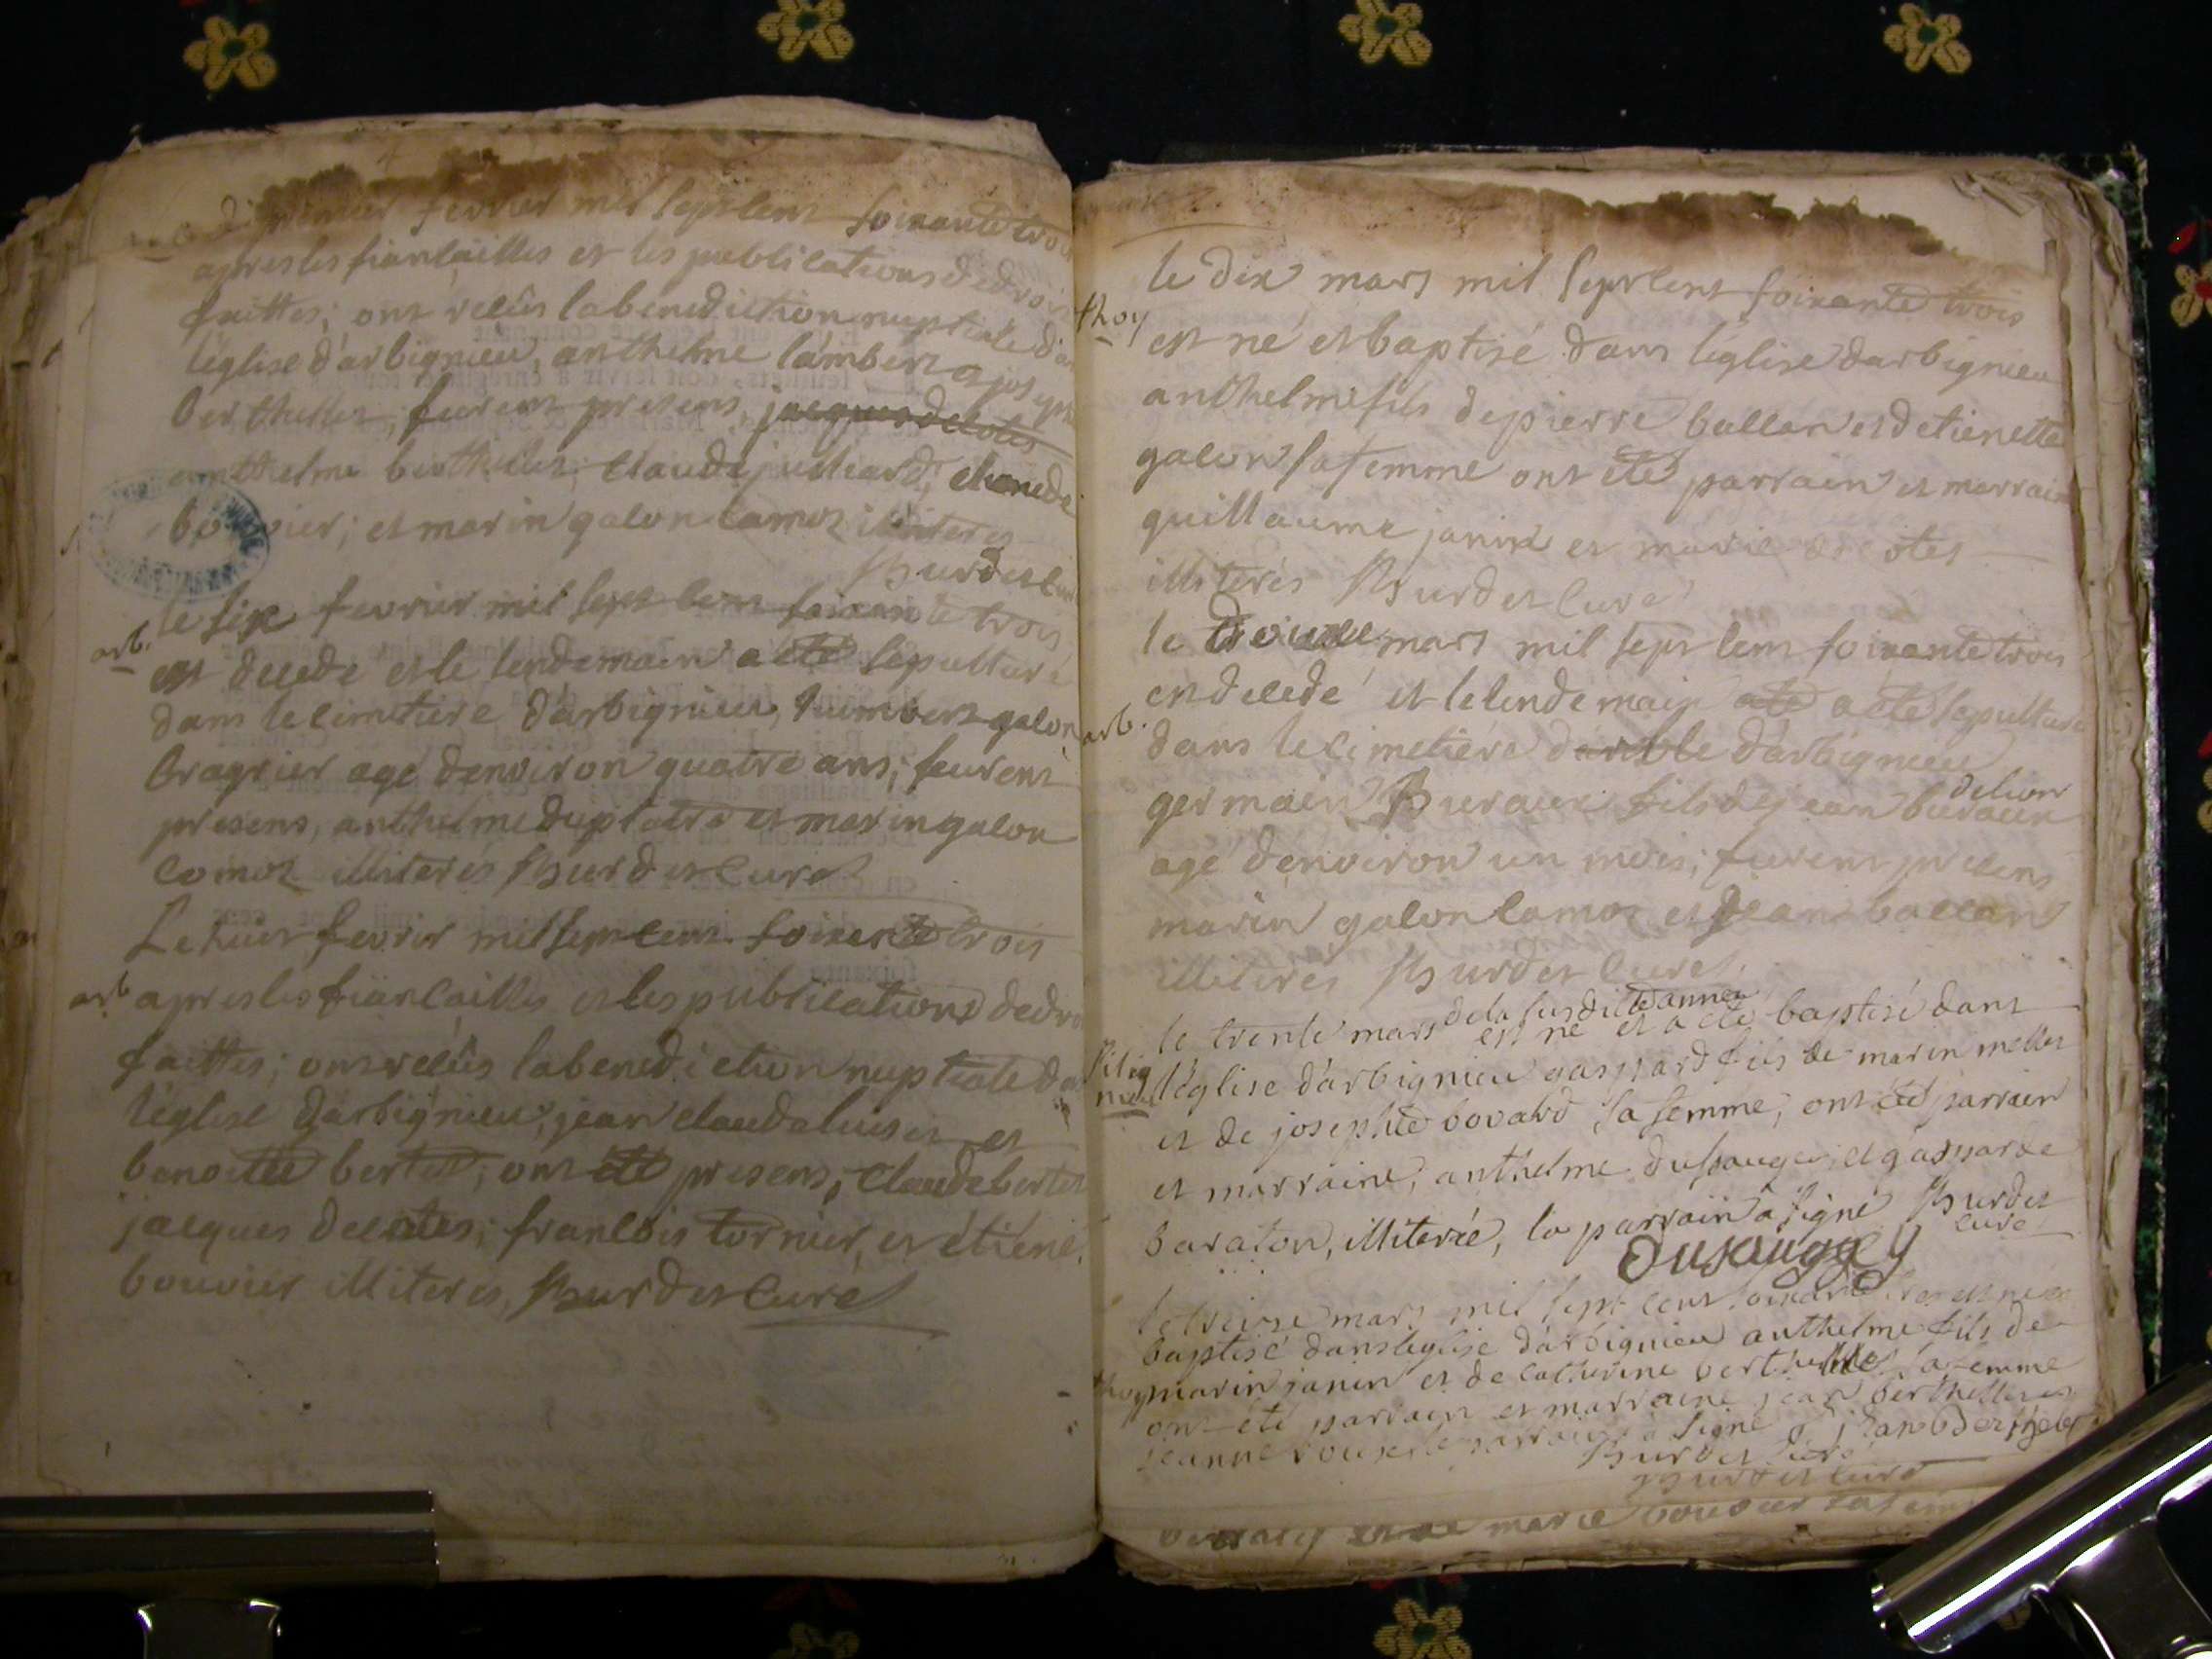 premier fevrier mil sept cent soixante trois
apres les fiancailles et les publications de droit
faittes; ont recûs la benediction nuptiale dans
l'église d'arbignieu, anthelme lambert et
berthellet, feurent presens, jacques decotes
anthelme berthellet, claude juilliard,
bouvier; et marin galon camoz illiteres
Burdet
arb.
le six fevrier mil sept cent soixante trois
est decede et le lendemain a eté sepulturé
dans le cimetiere d'arbignieu, humbert galon
bragrier agé denviron quatre ans; feurent
presens, anthelme duplatre et marin galon
comoz illiterés Burdet curé
Le huit fevrir mil sept cent soixante trois
arb apres les fiancailles et les publications de
faittes; ont recûs la benediction nuptiale
l'église d'arbignieu, jean claude et
benoitte bertet; ont été presens, claude bertet
jacques decotes; francois tornier, et étiene
bouvier illiteres, Burdet curé
le dix mars mil sept cent soixante trois
thoy
est né et baptisé dans l'église d'arbignieu
anthelme fils de pierre ballan et detienette
galon sa femme ont été parrain et marraine
guillaume janin et marie decotes
illiterés Burdet curé
le mars mil sept cent soixante trois
est decedé et le lendemain été a eté sepulturé
arb.
dans le cimetiere d'arbignieu
delion
germain Buraux fils de jean buraux
agé denviron un mois; feurent presens
marin galon camoz et jean ballan
illiterés Burdet curé
de la susditte annee
le trente mars est né et a eté baptisé dans
Pitig
nieu
l'église d'arbignieu gaspard fils de marin mellet
et de josephte bovard sa femme, ont été parrain
et marraine, anthelme dusauge et gasparde
baraton, illiterée, le parrain a signé Burdet
curé
Dusaugey
le treize mars mil sept cent
baptisé dans leglise d'arbignieu anthelme fils de
thoy
marin janin et de catherine berthellet sa femme
ont été parrain et marraine jean berthellet et
jeanne roux le parrain a signé
Burdet curé
Burdet curé
marie bouvier sa